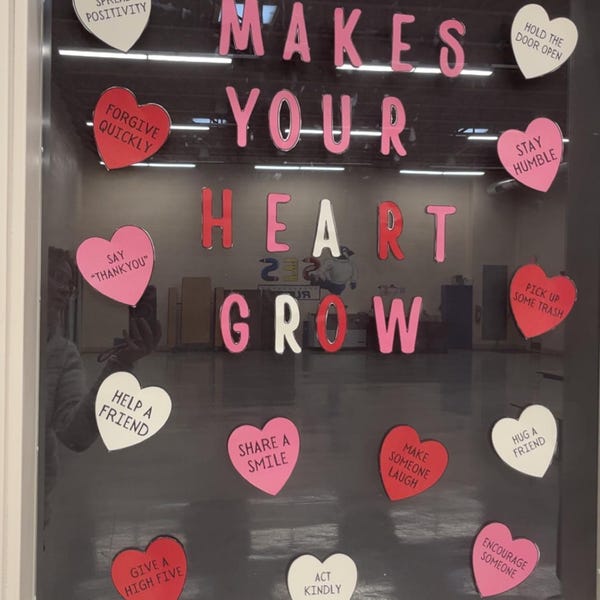 SPREAD
POSITIVITY
MAKES
HOLD THE
DOOR OPEN
YOUR
FORGIVE
QUICKLY
STAY
HUMBLE
HEART
SAY
"THANK YOU"
PICK UP
SOME TRASH
GROW
HELP A
FRIEND
SHARE A
SMILE
MAKE
SOMEONE
LAUGH
HUG A
FRIEND
GIVE A
HIGH FIVE
ACT
KINDLY
ENCOURAGE
SOMEONE